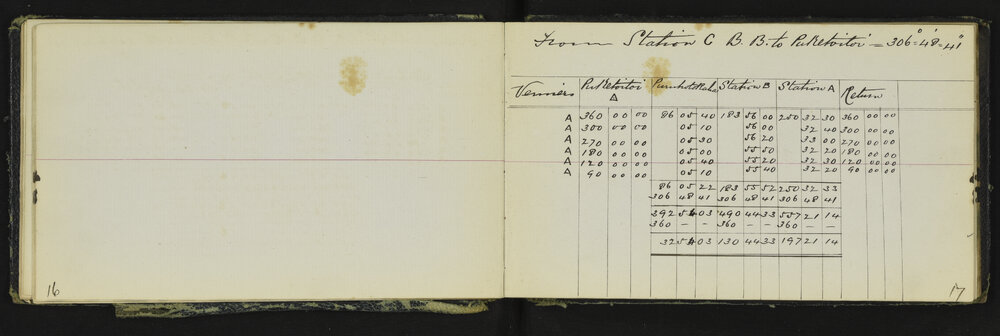 From Station C B. B. to Puketoitoi = 306° 48' 41"
Verniers Puketoitoi Station B Station A Return
Δ
A 360 00 00 86 05 40 183 56 00 250 32 30 360 00 00
A 300 00 00 05 10 56 00 32 40 300 00 00
A 270 00 00 05 30 56 20 33 00 270 00 00
A 180 00 00 05 00 55 50 32 20 180 00 00
A 120 00 00 05 40 55 20 32 30 120 00 00
A 90 00 00 05 10 55 40 32 20 90 00 00
86 05 22 183 55 52 250 32 33
306 48 41 306 48 41 306 48 41
392 54 03 490 44 33 557 21 14
360 – – 360 – – 360 – –
32 54 03 130 44 33 197 21 14
16
17